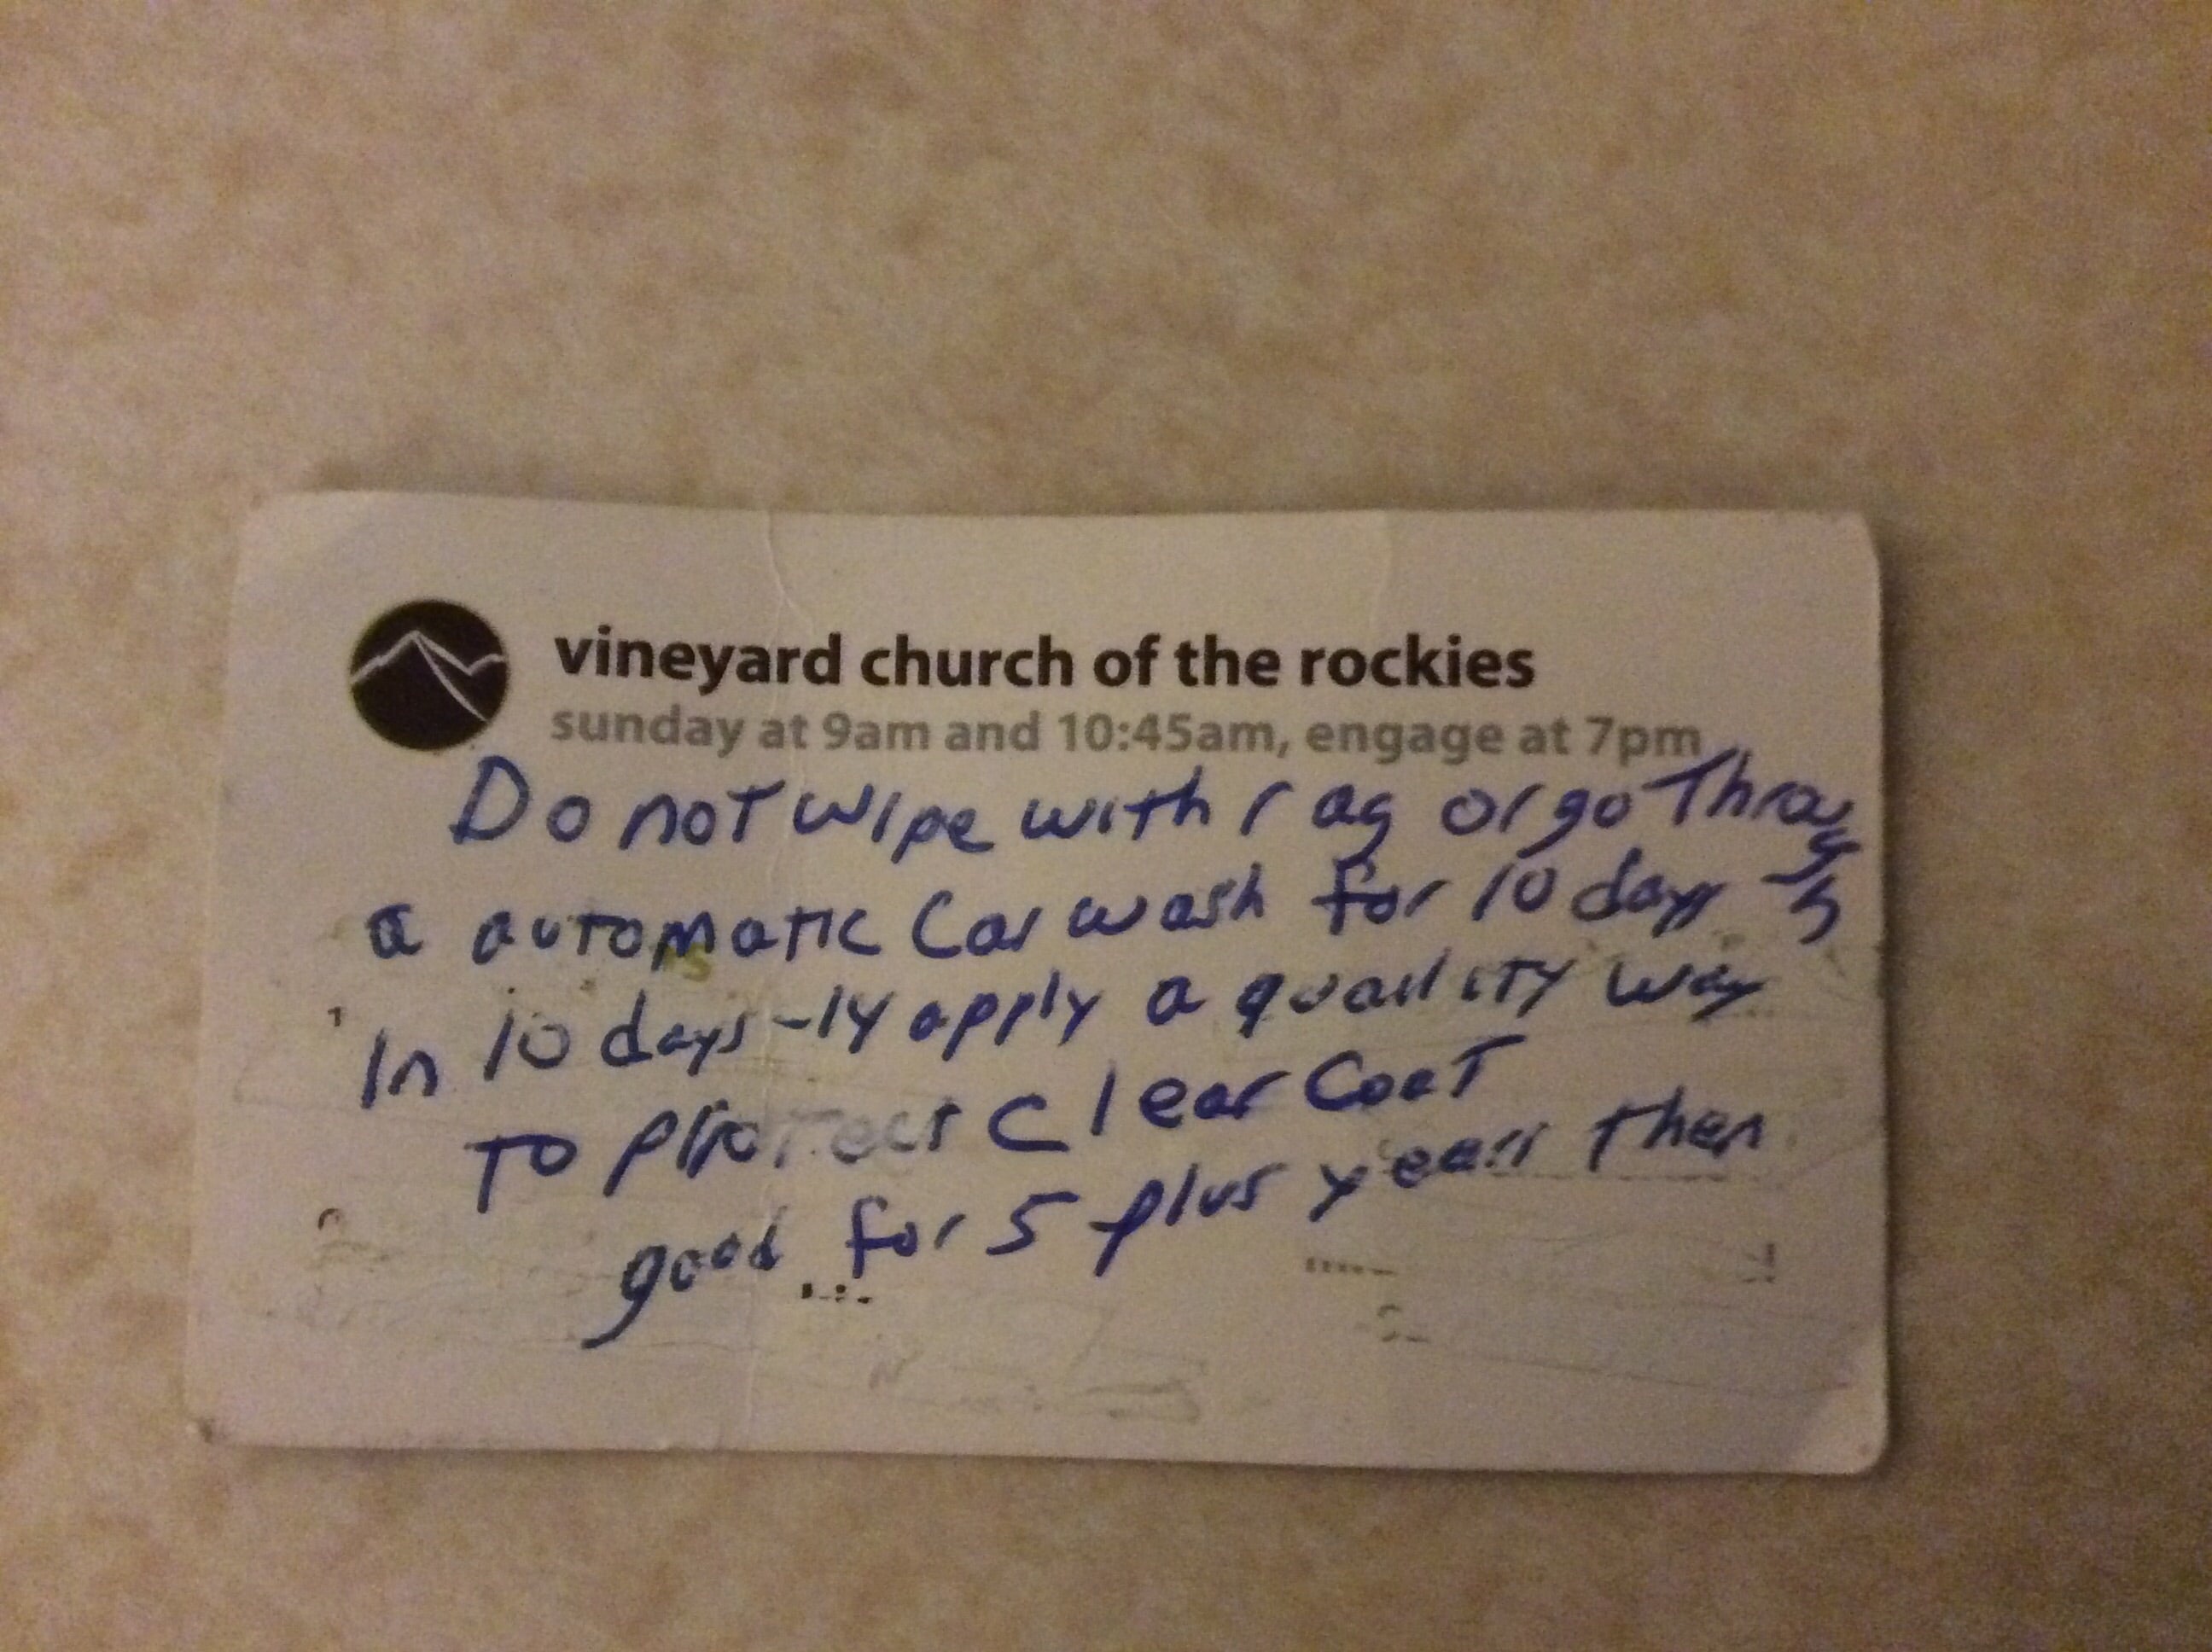 vineyard church of the rockies
sunday at 9am and 10:45am, engage at 7pm
Do not wipe with rag or go Through
a automatic Car wash for 10 days
In 10 days -14 apply a quality wax
To protect Clear Coat
good for 5 plus years then